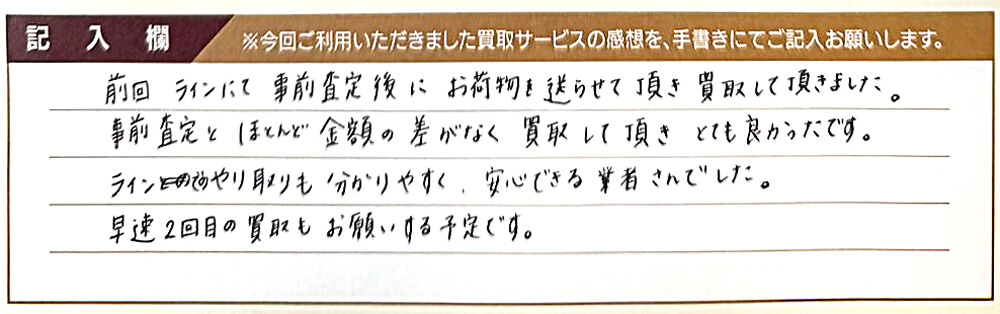 記入欄 ※今回ご利用いただきました買取サービスの感想を、手書きにてご記入お願いします。
前回 ラインにて 事前査定後に お荷物を送らせて頂き 買取して頂きました。
事前査定と ほとんど 金額の差がなく 買取して頂き とても良かったです。
ラインでのやり取りも 分かりやすく、安心できる業者さんでした。
早速2回目の買取も お願いする予定です。